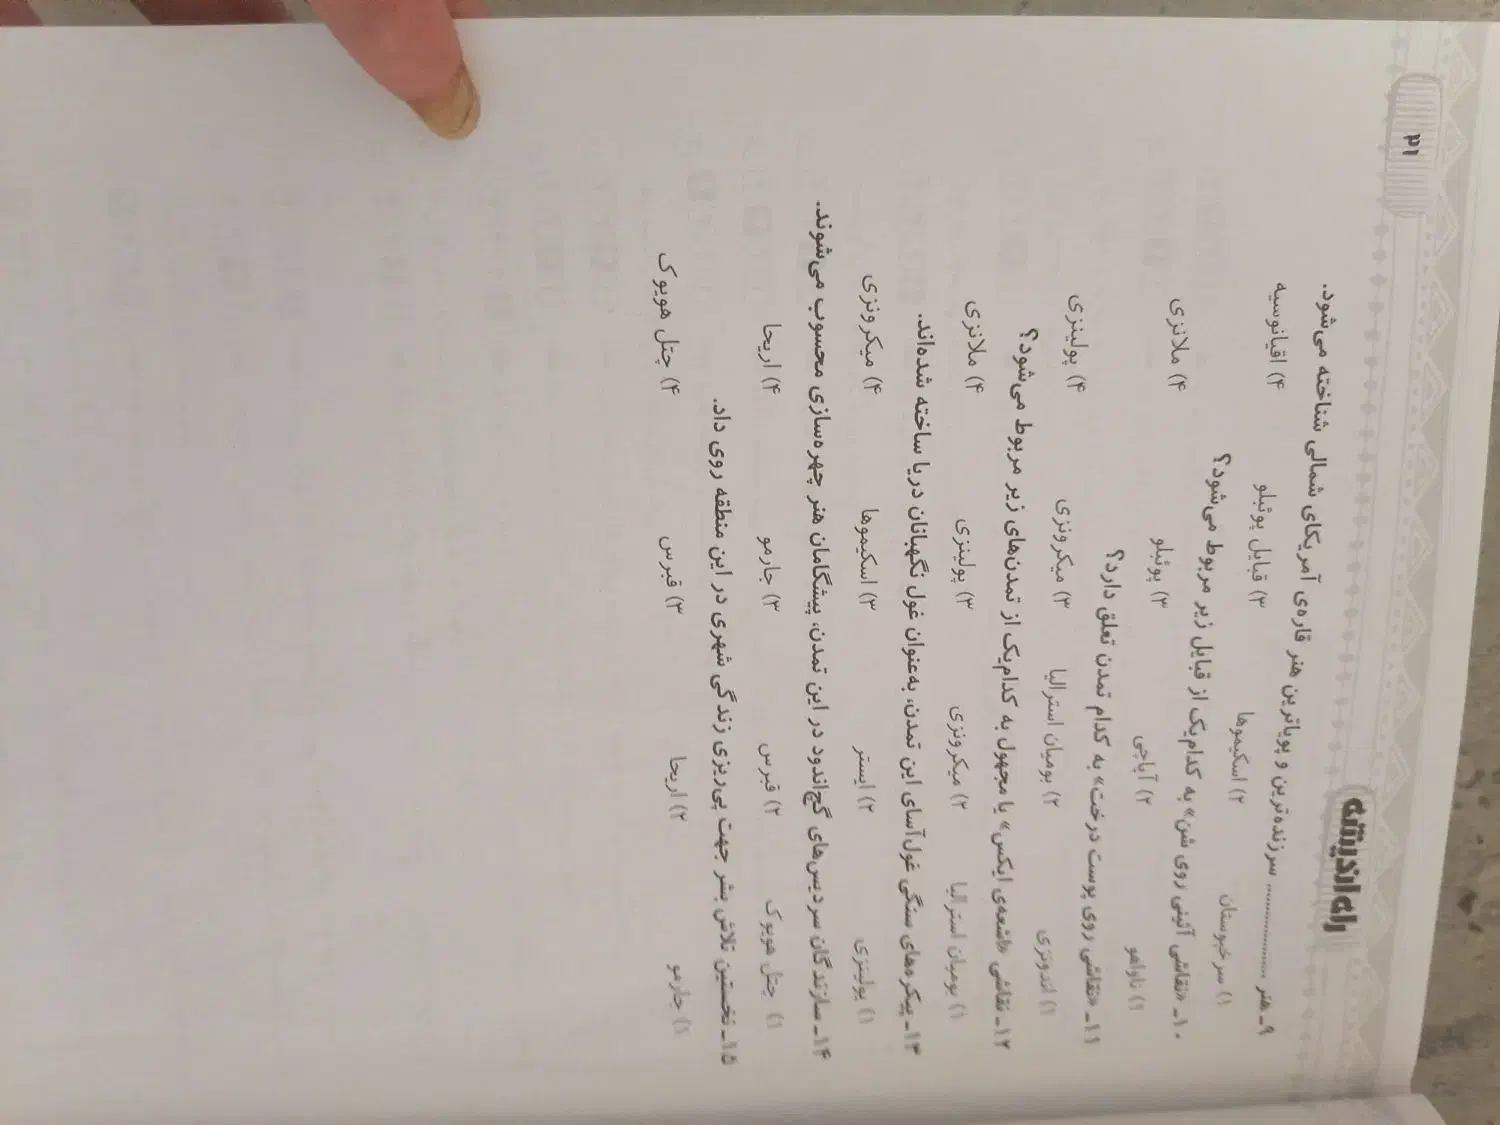 راه اندیشه
۲۱
۹ـ هنر .................... سرزنده‌ترین و پویاترین هنر قاره‌ی آمریکای شمالی شناخته می‌شود.
۱) سرخپوستان ۲) اسکیموها ۳) قبایل پوئبلو ۴) اقیانوسیه
۱۰ـ «نقاشی آئینی روی شن» به کدام‌یک از قبایل زیر مربوط می‌شود؟
۱) ناواهو ۲) آپاچی ۳) پوئبلو ۴) ملانزی
۱۱ـ «نقاشی روی پوست درخت» به کدام تمدن تعلق دارد؟
۱) اندونزی ۲) بومیان استرالیا ۳) میکرونزی ۴) پولینزی
۱۲ـ نقاشی «اشعه‌ی ایکس» یا مجهول به کدام‌یک از تمدن‌های زیر مربوط می‌شود؟
۱) بومیان استرالیا ۲) میکرونزی ۳) پولینزی ۴) ملانزی
۱۳ـ پیکره‌های سنگی غول‌آسای این تمدن، به‌عنوان غول نگهبانان دریا ساخته شده‌اند.
۱) پولینزی ۲) ایستر ۳) اسکیموها ۴) میکرونزی
۱۴ـ سازندگان سردیس‌های گچ‌اندود در این تمدن، پیشگامان هنر چهره‌سازی محسوب می‌شوند.
۱) چتل هویوک ۲) قبرس ۳) جارمو ۴) اریحا
۱۵ـ نخستین تلاش بشر جهت پی‌ریزی زندگی شهری در این منطقه روی داد.
۱) جارمو ۲) اریحا ۳) قبرس ۴) چتل هویوک